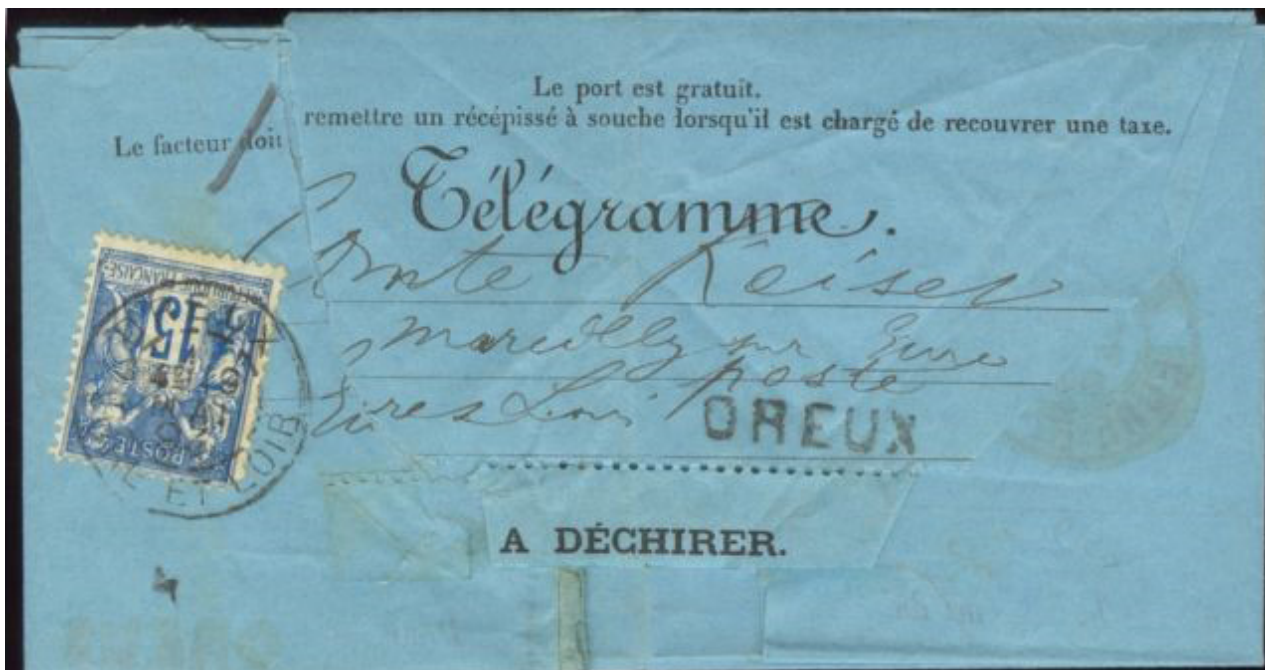 Le port est gratuit.
Le facteur doit remettre un récépissé à souche lorsqu'il est chargé de recouvrer une taxe.
Télégramme.
Comte Keiser
Marcilly sur Eure
poste
Eure Loir
DREUX
REPUBLIQUE FRANÇAISE
15
POSTES
ET LOIR
A DÉCHIRER.